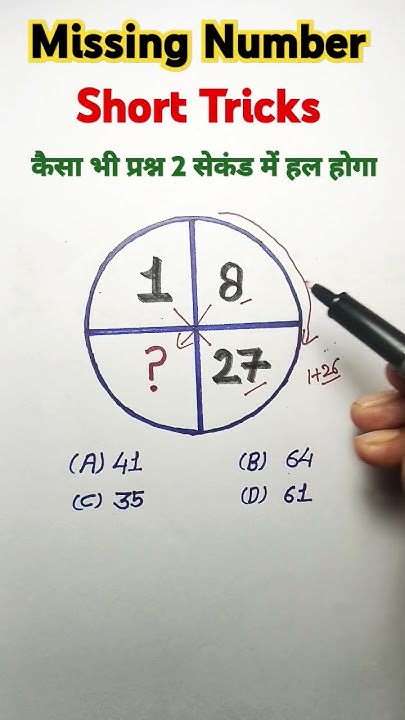 Missing Number
Short Tricks
कैसा भी प्रश्न 2 सेकंड में हल होगा
1 8
? 27
1+26
(A) 41 (B) 64
(C) 35 (D) 61